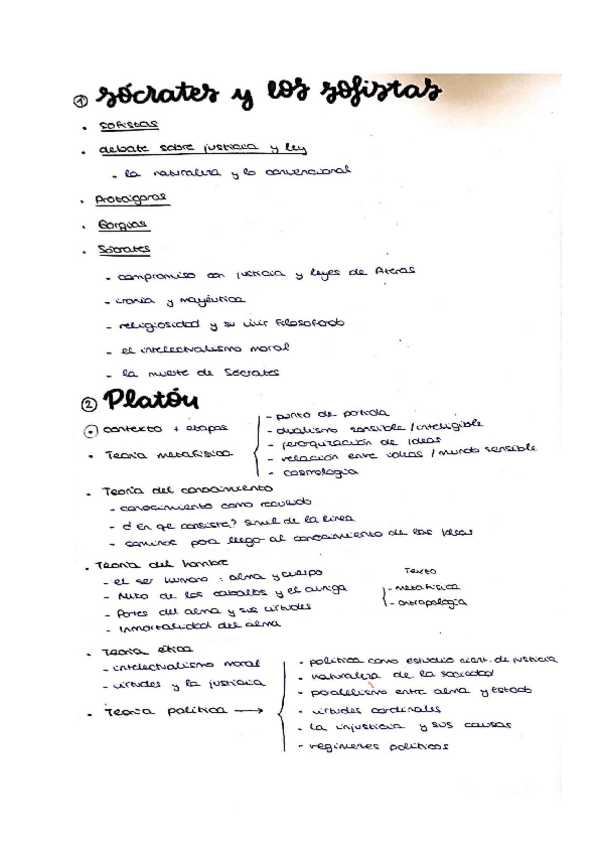 ① Sócrates y los sofistas
· Sofistas
· debate sobre justicia y ley
- la naturaleza y lo convencional
· Protágoras
· Gorgias
· Sócrates
- compromiso con justicia y leyes de Atenas
- ironía y mayéutica
- religiosidad y su vivir filosofando
- el intelectualismo moral
- la muerte de Sócrates
② Platón
· contexto + etapas
· Teoría metafísica
- punto de partida
- dualismo sensible / inteligible
- jerarquización de Ideas
- relación entre ideas / mundo sensible
- cosmología
· Teoría del conocimiento
- conocimiento como recuerdo
- ¿En qe consiste? Símil de la línea
- caminos para llegar al conocimiento de las Ideas
· Teoría del hombre
- el ser humano : alma y cuerpo
- Mito de los caballos y el auriga
- Partes del alma y sus virtudes
- Inmortalidad del alma
Texto
- metafísica
- antropología
· Teoría ética
- intelectualismo moral
- virtudes y la justicia
· Teoría política →
- política como estudio cient. de justicia
- naturaleza de la sociedad
- paralelismo entre alma y Estado
- virtudes cardinales
- la injusticia y sus causas
- regímenes políticos